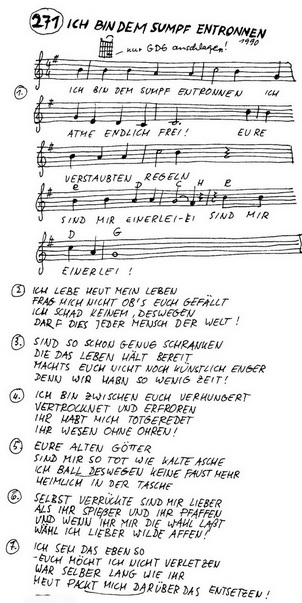 271 ICH BIN DEM SUMPF ENTRONNEN
1990
nur GDG anschlagen!
1. ICH BIN DEM SUMPF ENTRONNEN ICH
ATME ENDLICH FREI! EURE
VERSTAUBTEN REGELN
e D C H e
SIND MIR EINERLEI-EI SIND MIR
D G
EINERLEI!
2. ICH LEBE HEUT MEIN LEBEN
FRAG MICH NICHT OB'S EUCH GEFÄLLT
ICH SCHAD KEINEM, DESWEGEN
DARF DIES JEDER MENSCH DER WELT!
3. SIND SO SCHON GENUG SCHRANKEN
DIE DAS LEBEN HÄLT BEREIT
MACHTS EUCH NICHT NOCH KÜNSTLICH ENGER
DENN WIR HABN SO WENIG ZEIT!
4. ICH BIN ZWISCHEN EUCH VERHUNGERT
VERTROCKNET UND ERFROREN
IHR HABT MICH TOTGEREDET
IHR WESEN OHNE OHREN!
5. EURE ALTEN GÖTTER
SIND MIR SO TOT WIE KALTE ASCHE
ICH BALL DESWEGEN KEINE FAUST MEHR
HEIMLICH IN DER TASCHE
6. SELBST VERRÜCKTE SIND MIR LIEBER
ALS IHR SPIEßER UND IHR PFAFFEN
UND WENN IHR MIR DIE WAHL LAßT
WÄHL ICH LIEBER WILDE AFFEN!
7. ICH SEH DAS EBEN SO
-EUCH MÖCHT ICH NICHT VERLETZEN
WAR SELBER LANG WIE IHR
HEUT PACKT MICH DARÜBER DAS ENTSETZEN!